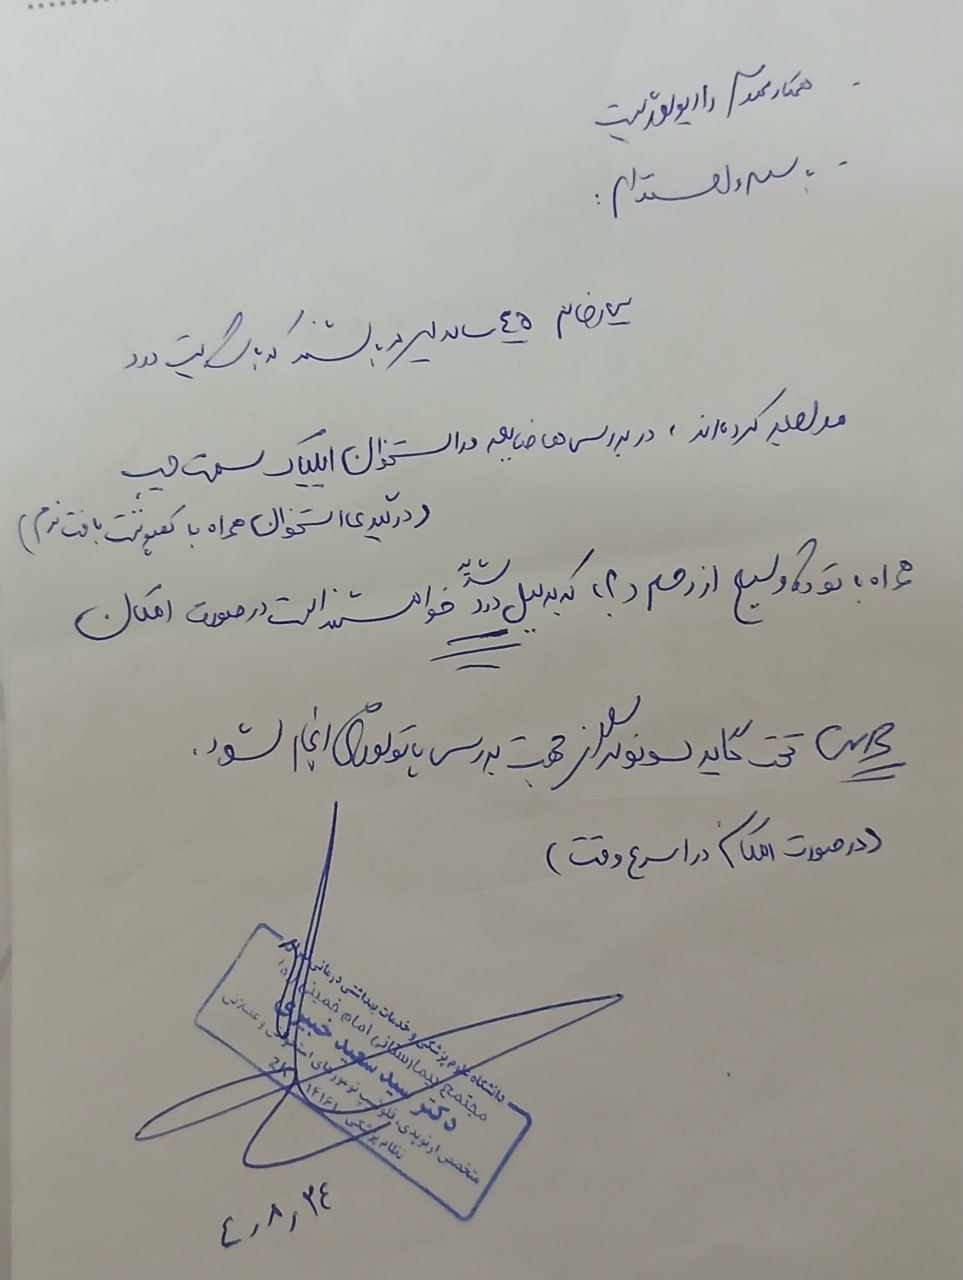 همکار محترم رادیولوژیست
با سلام و احترام :
بیمار خانم ٤٥ ساله می باشند که با شکایت درد
مراجعه کرده اند ، در بررسی ها ضایعه در استخوان ایلیاک سمت چپ
(درگیری استخوان همراه با کامپوننت بافت نرم)
همراه با توده وسیع از رحم (؟) که به دلیل درد شدید خواهشمند است در صورت امکان
تحت گاید سونوگرافی جهت بررسی پاتولوژی انجام شود .
(در صورت امکان در اسرع وقت)
دانشگاه علوم پزشکی و خدمات بهداشتی درمانی تهران
مجتمع بیمارستانی امام خمینی (ره)
دکتر سید سعید خبیری
متخصص ارتوپدی، فلوشیپ تومورهای استخوانی و عضلانی
نظام پزشکی ۱۴۱۶۱
٤,٨,٢٤